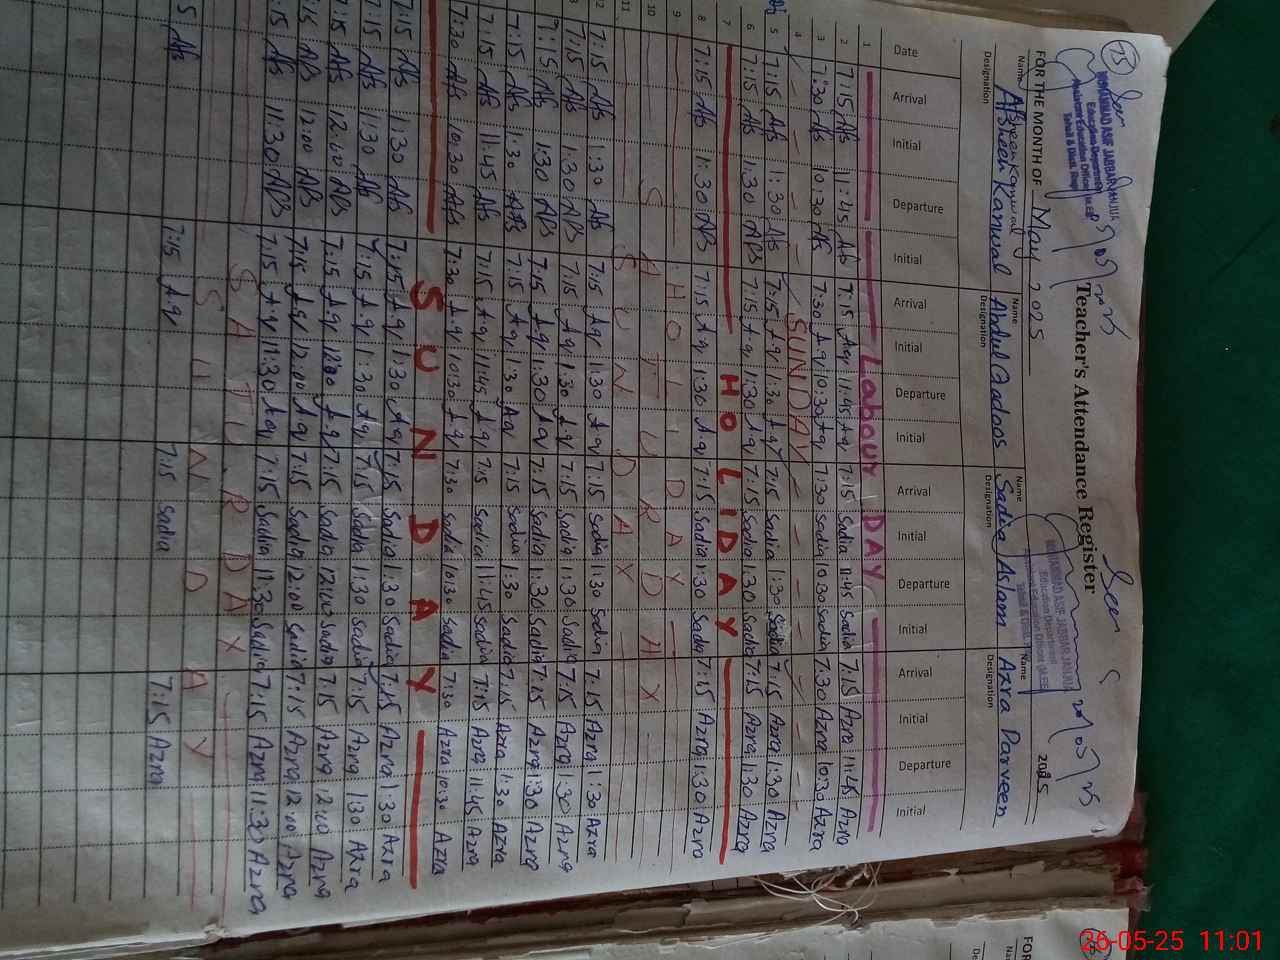 75
Seen
Teacher's Attendance Register
Seen
MUHAMMAD ASIF JABBAR JANJUA
Education Department
FOR THE MONTH OF May 2025 2025
Name Afsheen Kanwal Name Abdul Qadoos Name Sadia Aslam Name Azra Parveen
Designation Designation Designation Designation
Date Arrival Initial Departure Initial Arrival Initial Departure Initial Arrival Initial Departure Initial Arrival Initial Departure Initial
1 Labour DAY
2 7:15 Afs 11:45 Afs 7:15 A.q 11:45 A.q 7:15 Sadia 11:45 Sadia 7:15 Azra 11:45 Azra
3 7:30 Afs 10:30 Afs 7:30 A.q 10:30 A.q 7:30 Sadia 10:30 Sadia 7:30 Azra 10:30 Azra
4 SUNDAY
5 7:15 Afs 1:30 Afs 7:15 A.q 1:30 A.q 7:15 Sadia 1:30 Sadia 7:15 Azra 1:30 Azra
6 7:15 Afs 1:30 Afs 7:15 A.q 1:30 A.q 7:15 Sadia 1:30 Sadia 7:15 Azra 1:30 Azra
7 HOLIDAY
8 7:15 Afs 1:30 Afs 7:15 A.q 1:30 A.q 7:15 Sadia 1:30 Sadia 7:15 Azra 1:30 Azra
9 HOLIDAY
10 SATURDAY
11 SUNDAY
12 7:15 Afs 1:30 Afs 7:15 A.q 1:30 A.q 7:15 Sadia 1:30 Sadia 7:15 Azra 1:30 Azra
7:15 Afs 1:30 Afs 7:15 A.q 1:30 A.q 7:15 Sadia 1:30 Sadia 7:15 Azra 1:30 Azra
7:15 Afs 1:30 Afs 7:15 A.q 1:30 A.q 7:15 Sadia 1:30 Sadia 7:15 Azra 1:30 Azra
7:15 Afs 1:30 Afs 7:15 A.q 1:30 A.q 7:15 Sadia 1:30 Sadia 7:15 Azra 1:30 Azra
7:15 Afs 11:45 Afs 7:15 A.q 11:45 A.q 7:15 Sadia 11:45 Sadia 7:15 Azra 11:45 Azra
7:30 Afs 10:30 Afs 7:30 A.q 10:30 A.q 7:30 Sadia 10:30 Sadia 7:30 Azra 10:30 Azra
SUNDAY
7:15 Afs 1:30 Afs 7:15 A.q 1:30 A.q 7:15 Sadia 1:30 Sadia 7:15 Azra 1:30 Azra
7:15 Afs 1:30 Afs 7:15 A.q 1:30 A.q 7:15 Sadia 1:30 Sadia 7:15 Azra 1:30 Azra
7:15 Afs 12:00 Afs 7:15 A.q 12:00 A.q 7:15 Sadia 12:00 Sadia 7:15 Azra 12:00 Azra
7:15 Afs 12:00 Afs 7:15 A.q 12:00 A.q 7:15 Sadia 12:00 Sadia 7:15 Azra 12:00 Azra
7:15 Afs 11:30 Afs 7:15 A.q 11:30 A.q 7:15 Sadia 11:30 Sadia 7:15 Azra 11:30 Azra
SATURDAY
SUNDAY
5 Afs 7:15 A.q 7:15 Sadia 7:15 Azra
26-05-25 11:01